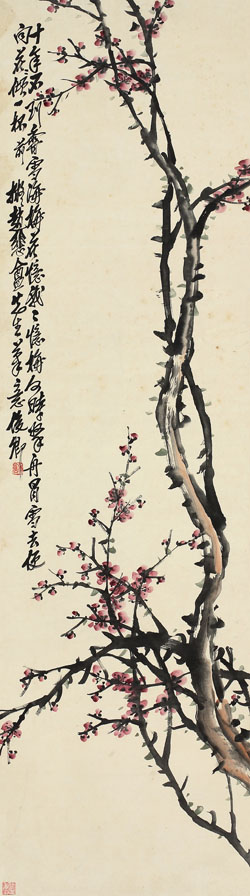 十年不到香雪海梅花憶我〻憶梅何時拏舟冒雪去便
向花傾一杯 前 擬趙悲盦先生筆意俊卿